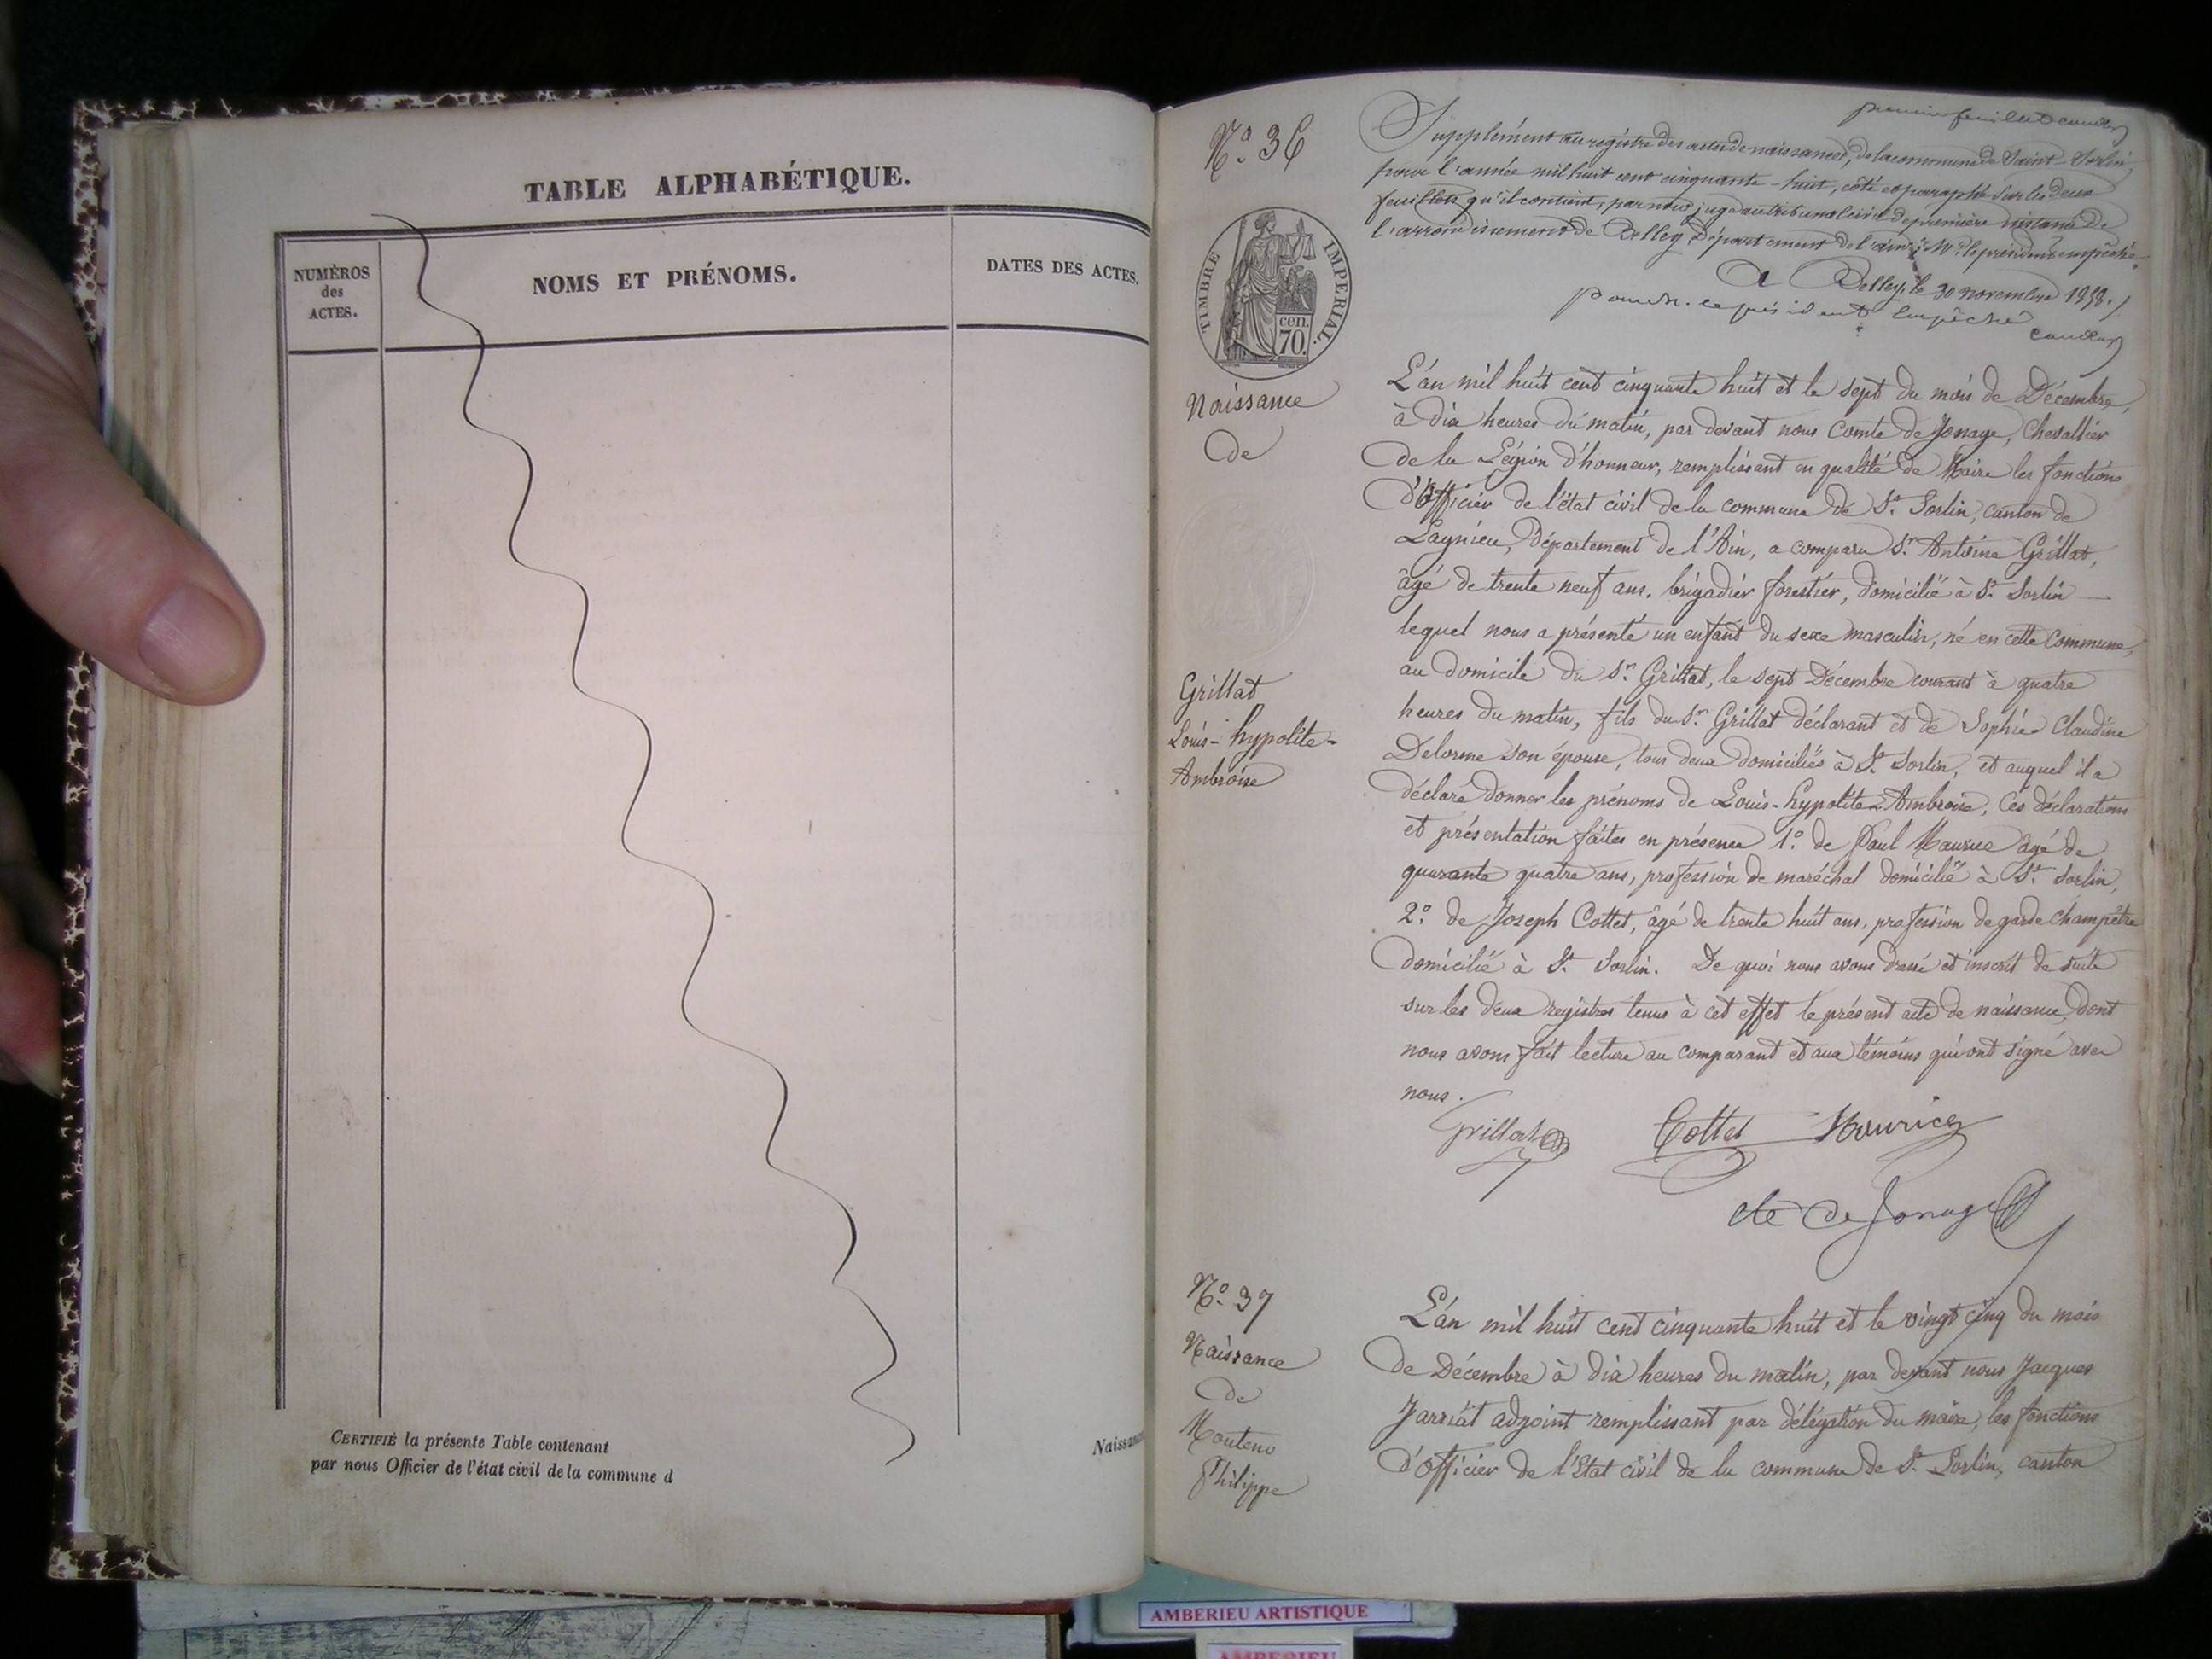 TABLE ALPHABÉTIQUE.
NUMÉROS
des
ACTES.
NOMS ET PRÉNOMS.
DATES DES ACTES.
CERTIFIÉ la présente Table contenant
par nous Officier de l'état civil de la commune d
Naissan
N.º 36
TIMBRE IMPERIAL.
cen.
70.
Naissance
de
Grillat
Louis-hypolite-
Ambroise
premier feuillet
Supplément au régistre des actes de naissances, de la commune de Saint-Sorlin
pour l'année mil huit cent cinquante-huit, côté et paraphé sur les deux
feuillets qu'il contient, par nous juge au tribunal civil de première instance de
l'arrondissement de Belley, Département de l'ain, Mr. le président empêché.
A Belley, le 30 novembre 1858.
pour Mr. le président empêché
L'an mil huit cent cinquante huit et le sept du mois de Décembre,
à dix heures du matin, par devant nous Comte de Jonage, Chevallier
de la Légion d'honneur, remplissant en qualité de Maire les fonctions
d'Officier de l'état civil de la commune de St. Sorlin, canton de
Lagnieu, Département de l'Ain, a comparu Sr. Antoine Grillat,
âgé de trente neuf ans, brigadier forestier, domicilié à St. Sorlin
lequel nous a présenté un enfant du sexe masculin, né en cette Commune,
au domicile du Sr. Grillat, le sept Décembre courant à quatre
heures du matin, fils du Sr. Grillat déclarant et de Sophie Claudine
Delorme son épouse, tous deux domiciliés à St. Sorlin, et auquel il a
déclaré donner les prénoms de Louis-hypolite-Ambroise. Ces déclarations
et présentation faites en présence 1.º de Paul Maurice âgé de
quarante quatre ans, profession de maréchal domicilié à St. Sorlin,
2.º de Joseph Cottet, âgé de trente huit ans, profession de garde Champêtre
domicilié à St. Sorlin. De quoi nous avons dressé et inscrit de suite
sur les deux registres tenus à cet effet le présent acte de naissance, dont
nous avons fait lecture au comparant et aux témoins qui ont signé avec
nous.
Grillat Cottet Maurice
cte de Jonage
N.º 37
Naissance
de
Montenu
Philippe
L'an mil huit cent cinquante huit et le vingt cinq du mois
de Décembre à dix heures du matin, par devant nous Jacques
Jarriat adjoint remplissant par délégation du maire, les fonctions
d'officier de l'Etat civil de la commune de St. Sorlin, canton
AMBERIEU ARTISTIQUE
AMBERIEU